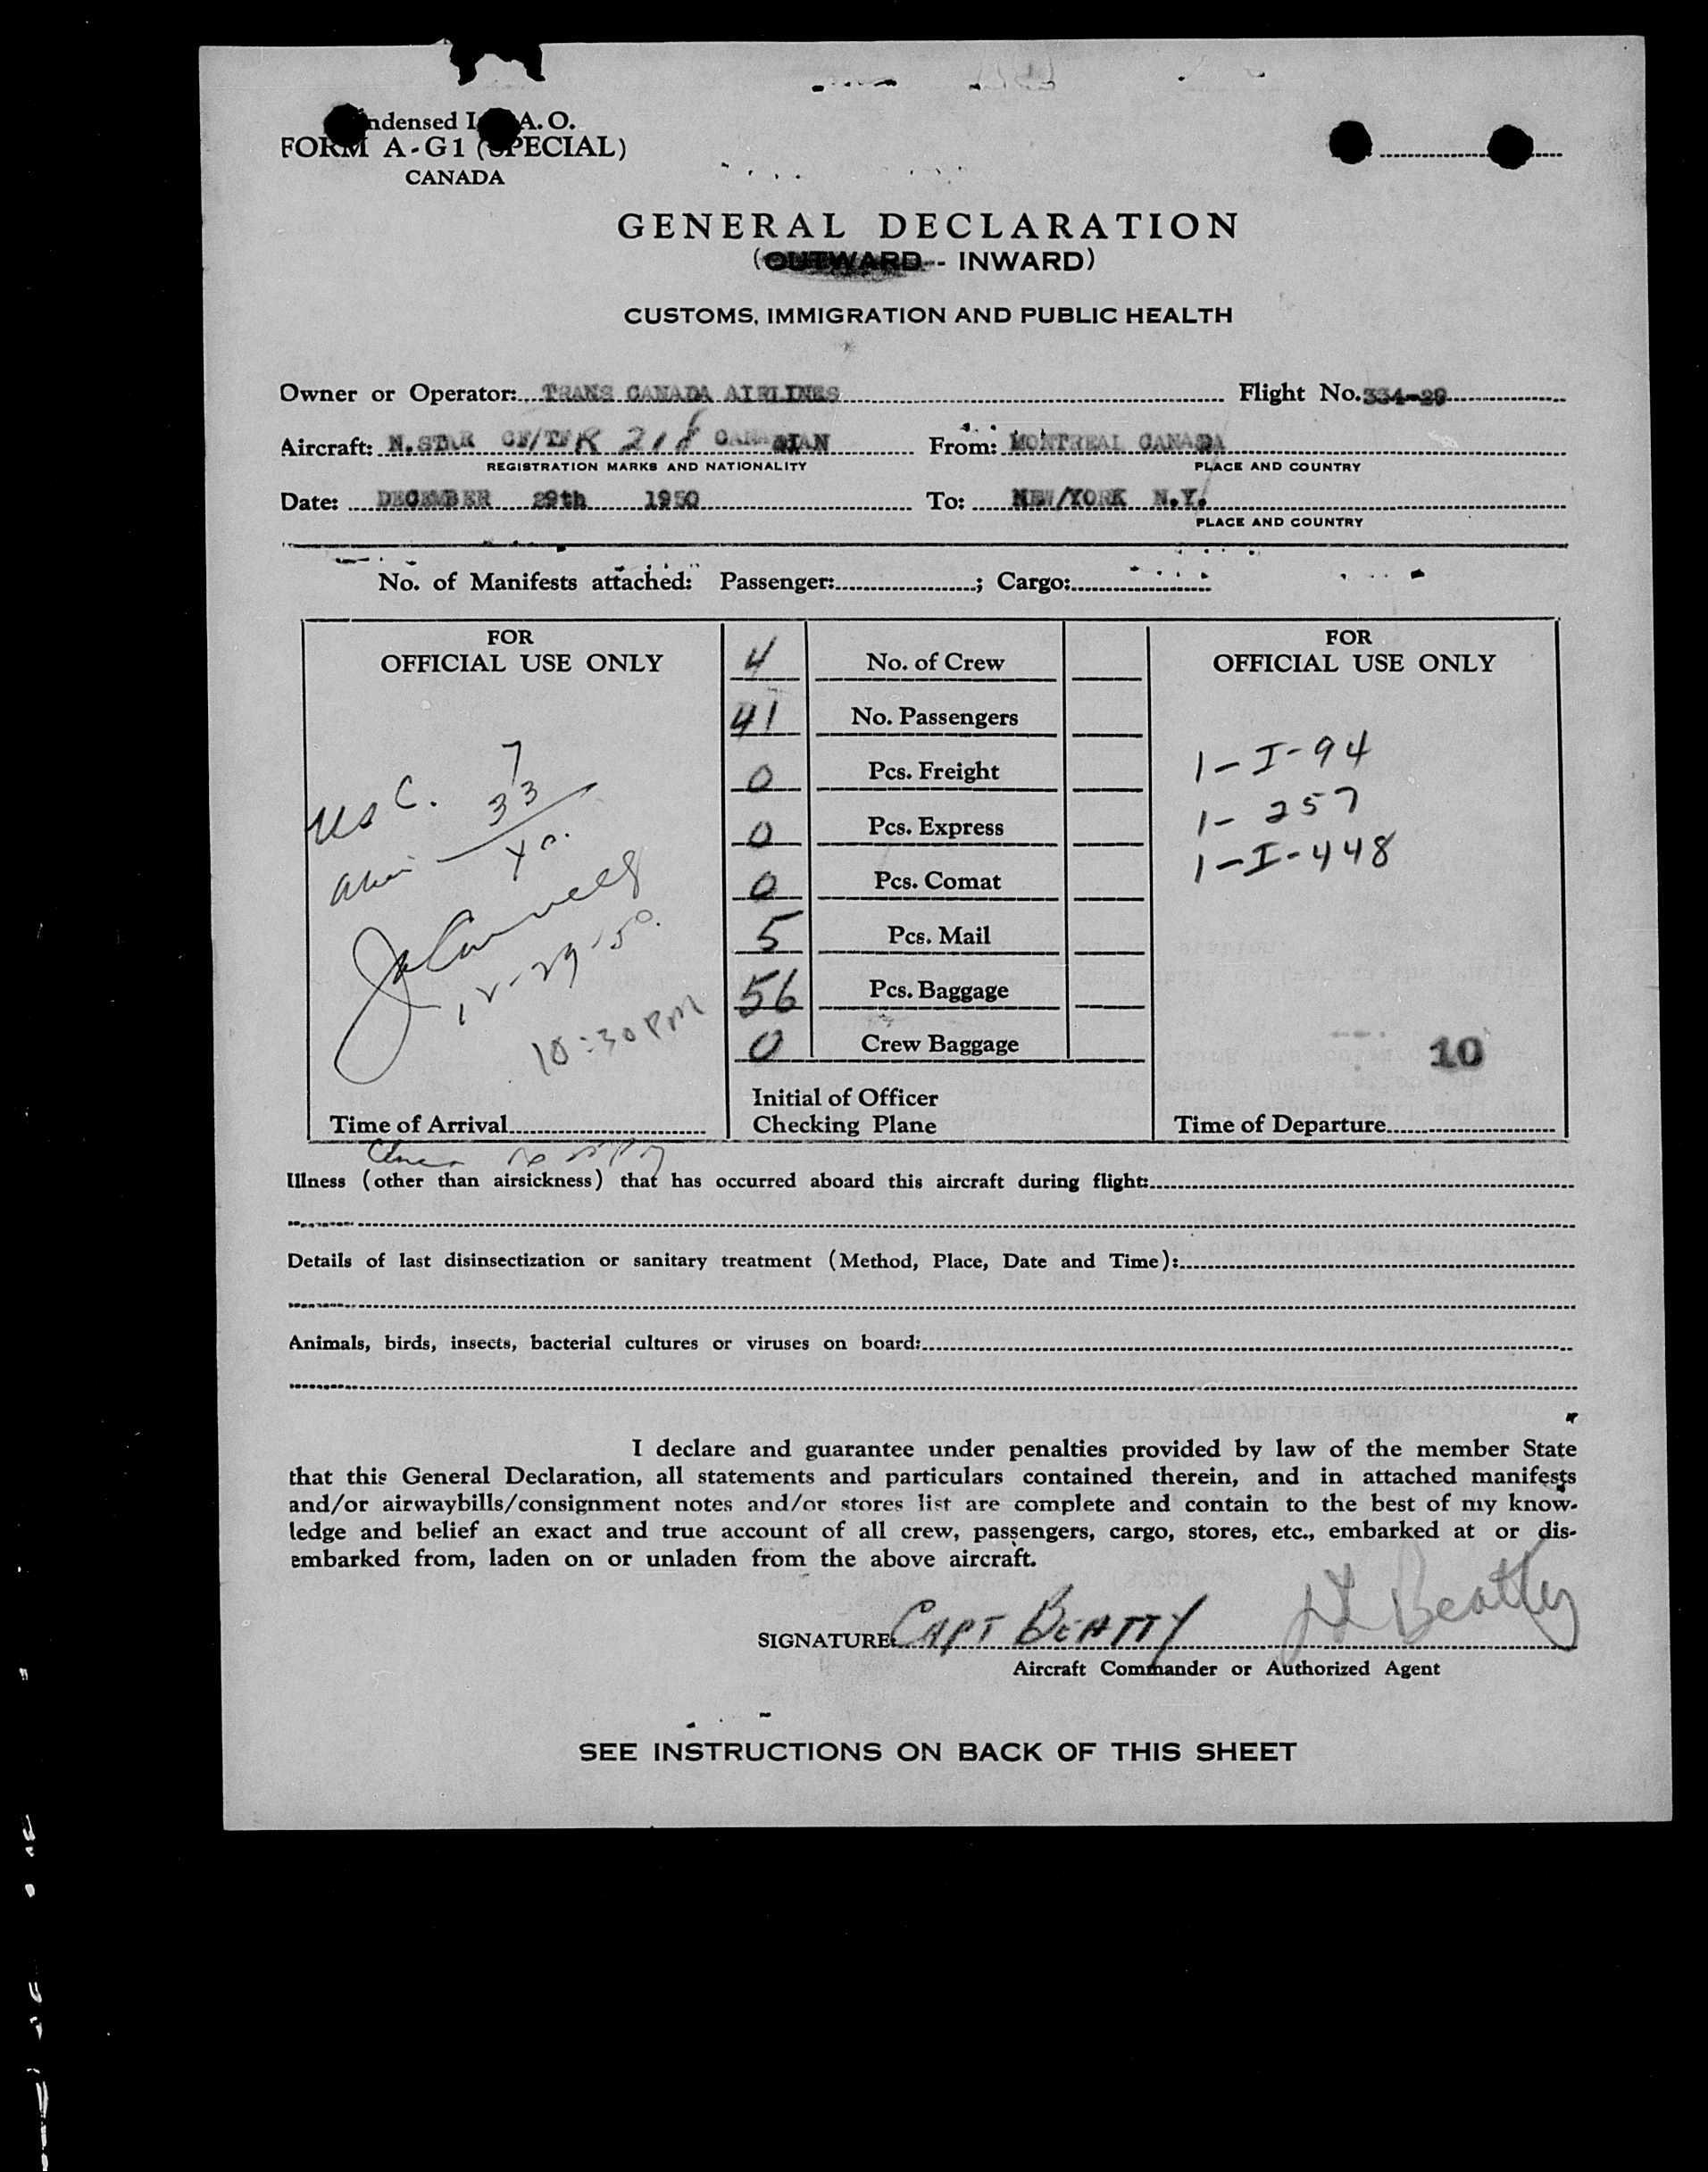 ndensed I A. O.
FORM A-G1 (SPECIAL)
CANADA
GENERAL DECLARATION
(OUTWARD - INWARD)
CUSTOMS, IMMIGRATION AND PUBLIC HEALTH
Owner or Operator: TRANS CANADA AIRLINES Flight No. 334-29
Aircraft: N.STAR CF/TFK 218 CANADIAN From: MONTREAL CANADA
REGISTRATION MARKS AND NATIONALITY PLACE AND COUNTRY
Date: DECEMBER 29th 1950 To: NEW/YORK N.Y.
PLACE AND COUNTRY
No. of Manifests attached: Passenger: ; Cargo:
FOR
OFFICIAL USE ONLY
USC. 7
33
JaConnell
12-29-50.
10:30PM
Time of Arrival
4 No. of Crew
41 No. Passengers
0 Pcs. Freight
0 Pcs. Express
0 Pcs. Comat
5 Pcs. Mail
56 Pcs. Baggage
0 Crew Baggage
Initial of Officer
Checking Plane
FOR
OFFICIAL USE ONLY
1-I-94
1- 257
1-I-448
10
Time of Departure
Illness (other than airsickness) that has occurred aboard this aircraft during flight:
Details of last disinsectization or sanitary treatment (Method, Place, Date and Time):
Animals, birds, insects, bacterial cultures or viruses on board:
I declare and guarantee under penalties provided by law of the member State
that this General Declaration, all statements and particulars contained therein, and in attached manifests
and/or airwaybills/consignment notes and/or stores list are complete and contain to the best of my know-
ledge and belief an exact and true account of all crew, passengers, cargo, stores, etc., embarked at or dis-
embarked from, laden on or unladen from the above aircraft.
SIGNATURE: CAPT BEATTY Beatty
Aircraft Commander or Authorized Agent
SEE INSTRUCTIONS ON BACK OF THIS SHEET